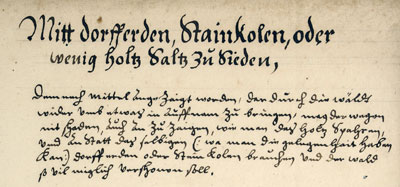 Mitt dorfferden, Stainkolen, oder
wenig holtz Saltz zu Sieden,
Demnach mittel angezaigt worden, der durch die wäldt
wider umb etwas in auffnam zu bringen, mag der wagen
nit schaden, auch an zu zaigen, wie man das holtz spahren,
und an statt des selbigen (: wa man die gelegenhait haben
kan:) dorfferden oder Stain kolen brauchen und der wald
so vil müglich verschonen soll.